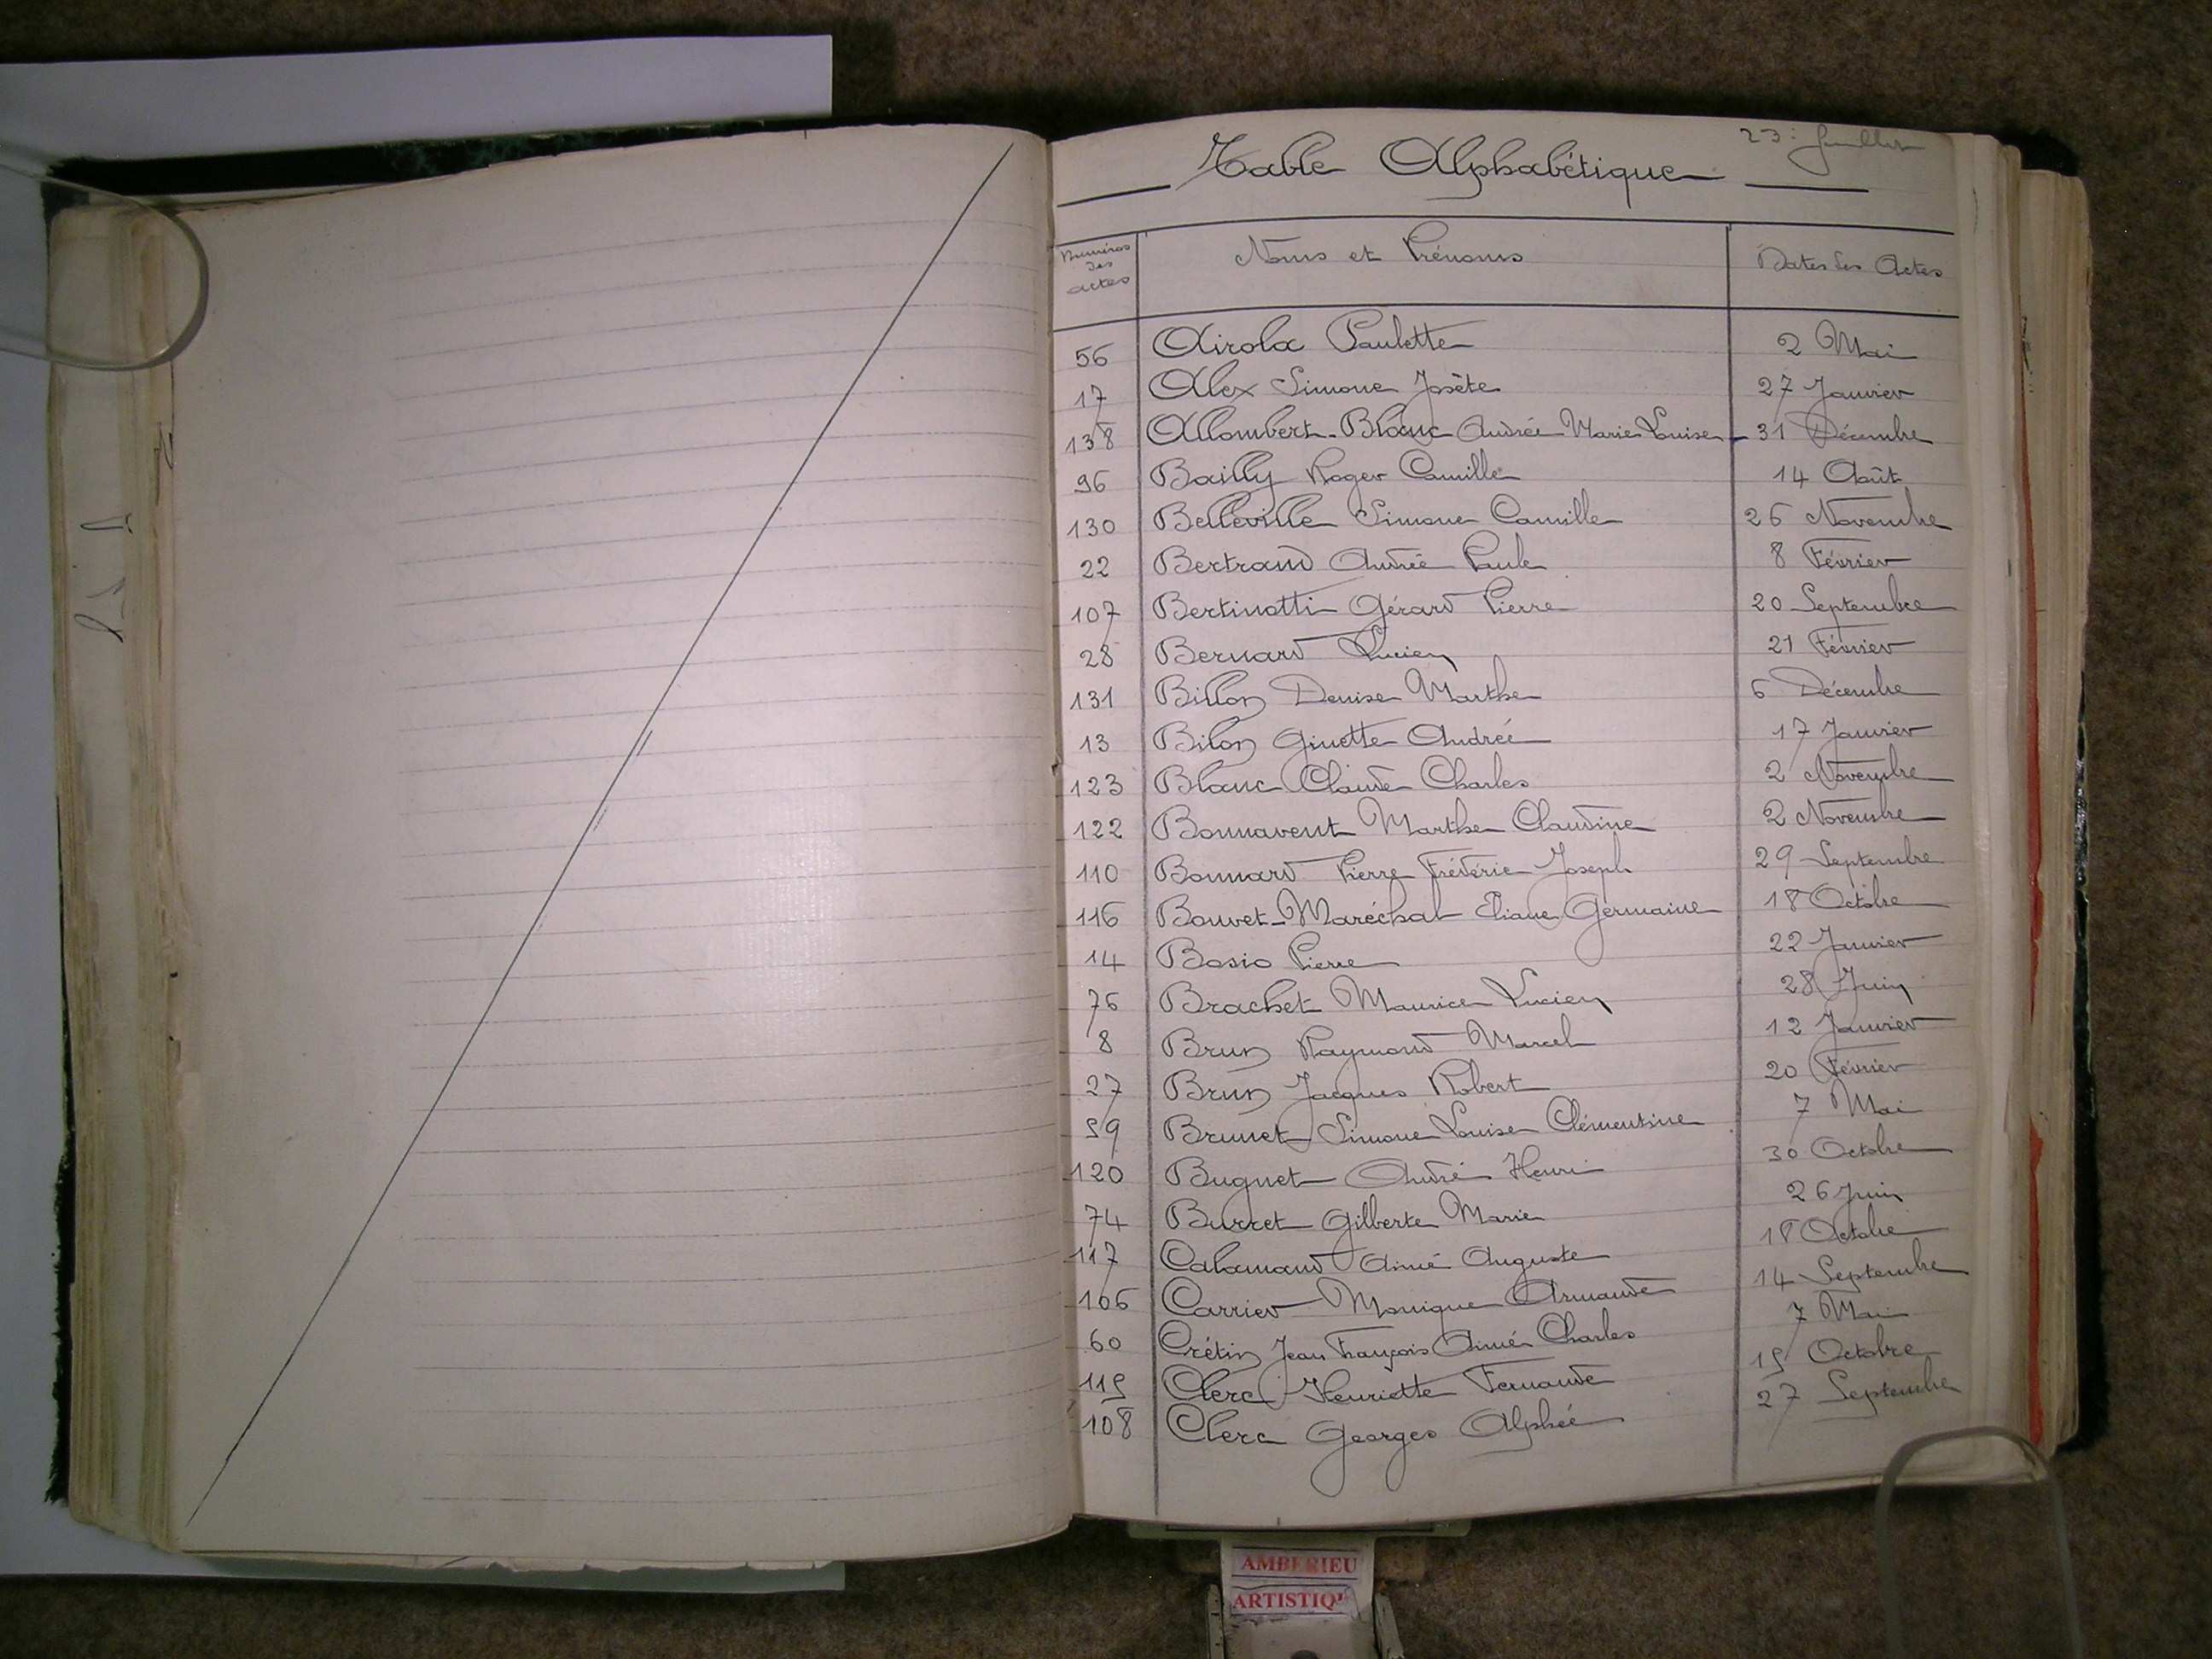 23e feuillet
Table Alphabétique
Numéros des actes Noms et Prénoms Dates des Actes
56 Airola Paulette 2 Mai
17 Alex Simone Josète 27 Janvier
138 Allombert-Blanc Andrée Marie Louise 31 Décembre
96 Bailly Roger Camille 14 Août
130 Belleville Simone Camille 26 Novembre
22 Bertrand Andrée Paule 8 Février
107 Bertinotti Gérard Pierre 20 Septembre
28 Bernard Lucien 21 Février
131 Billon Denise Marthe 6 Décembre
13 Bilon Ginette Andrée 17 Janvier
123 Blanc Claude Charles 2 Novembre
122 Bonnavent Marthe Claudine 2 Novembre
110 Bonnard Pierre Frédéric Joseph 29 Septembre
116 Bouvet-Maréchal Eliane Germaine 18 Octobre
14 Bosio Pierre 22 Janvier
76 Brachet Maurice Lucien 28 Juin
8 Brun Raymond Marcel 12 Janvier
27 Brun Jacques Robert 20 Février
59 Brunet Simone Louise Clémentine 7 Mai
120 Buguet André Henri 30 Octobre
74 Burret Gilberte Marie 26 Juin
117 Calamand Aimé Auguste 18 Octobre
106 Carrier Monique Armande 14 Septembre
60 Crétin Jean François Aimé Charles 7 Mai
115 Clerc Henriette Fernande 15 Octobre
108 Clerc Georges Alphée 27 Septembre
AMBERIEU
ARTISTIQ